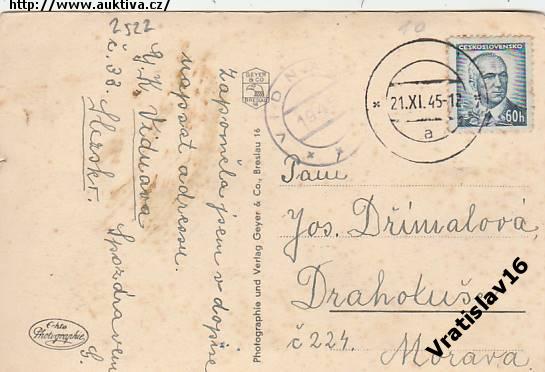 http://www.auktiva.cz/
2522
10
Zapomněla jsem v dopise
napsat adresu.
Vidnava
č. 33. Slezsko.
Spozdravem
GEYER
& CO
BRESLAU 16
Photographie und Verlag Geyer & Co., Breslau 16
Echte
Photographie
VIDN
21.XI.45-12
a
ČESKOSLOVENSKO
60h
Paní
Jos. Dřímalová,
Drahotuše
č 224.
Morava
Vratislav16